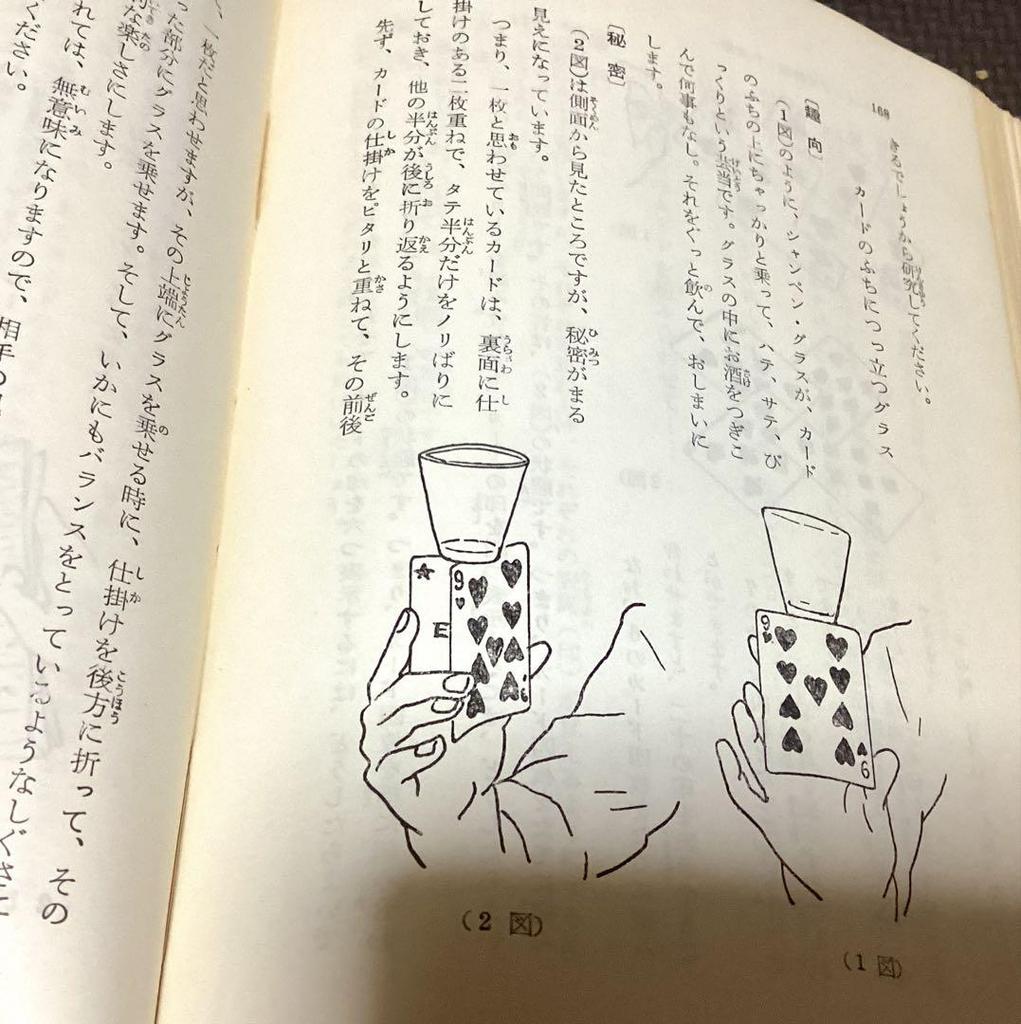 168
きるでしょうから研究してください。
カードのふちにつっ立つグラス
〔趣向〕
(1図)のように、シャンペン・グラスが、カード
のふちの上にちゃっかりと乗って、ハテ、サテ、び
っくりという芸当です。グラスの中にお酒をつぎこ
んで何事もなし。それをぐっと飲んで、おしまいに
します。
〔秘密〕
(2図)は側面から見たところですが、秘密がまる
見えになっています。
つまり、一枚と思わせているカードは、裏面に仕
掛けのある二枚重ねで、タテ半分だけをノリばりに
しておき、他の半分が後に折り返るようにします。
先ず、カードの仕掛けをピタリと重ねて、その前後
9
9
(1図)
E
9
9
(2図)
、一枚だと思わせますが、その上端にグラスを乗せる時に、仕掛けを後方に折って、その
った部分にグラスを乗せます。そして、いかにもバランスをとっているようなしぐさに
な楽しさにします。
れては、無意味になりますので、相手の
ください。